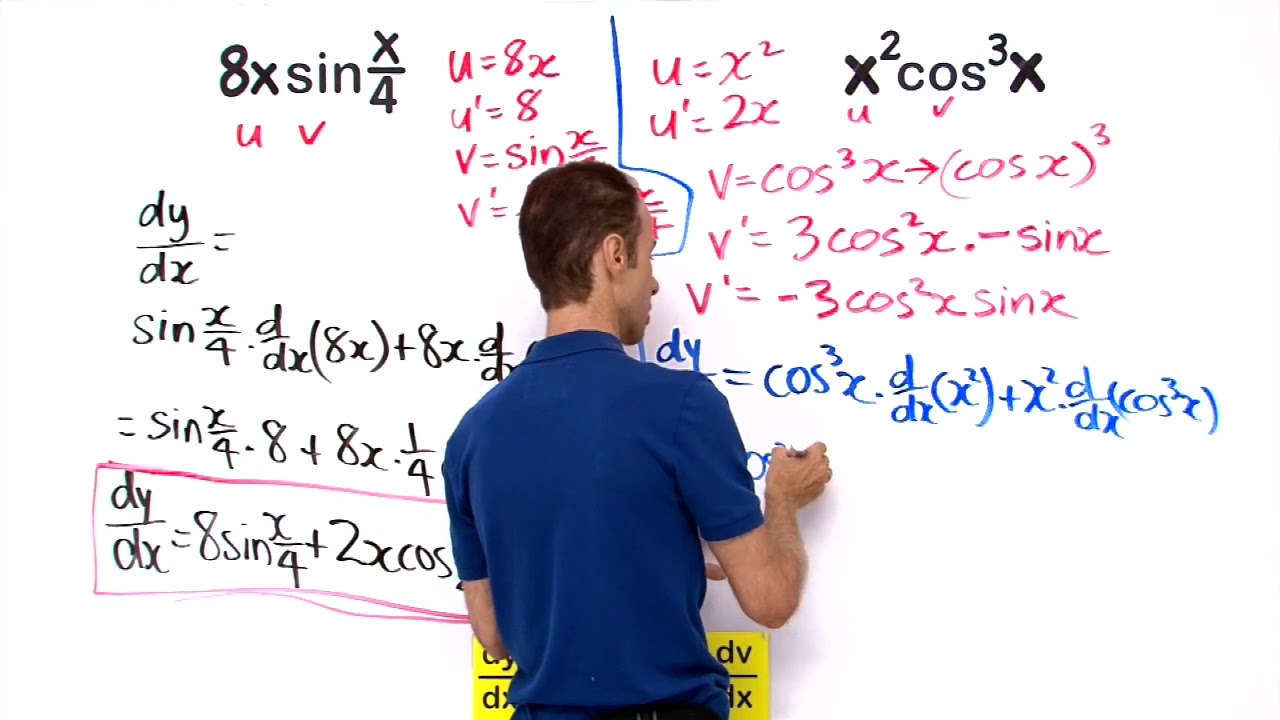 8x sin x/4
u v
u = 8x
u' = 8
v = sin x
v' =
dy/dx =
sin x/4 · d/dx (8x) + 8x · d/dx
= sin x/4 · 8 + 8x · 1/4
dy/dx = 8 sin x/4 + 2x cos
x² cos³ x
u v
u = x²
u' = 2x
v = cos³x → (cos x)³
v' = 3cos²x . - sinx
v' = -3cos²x sinx
dy = cos³x · d/dx (x²) + x² · d/dx (cos³x)
os
dy/dx
dv/dx